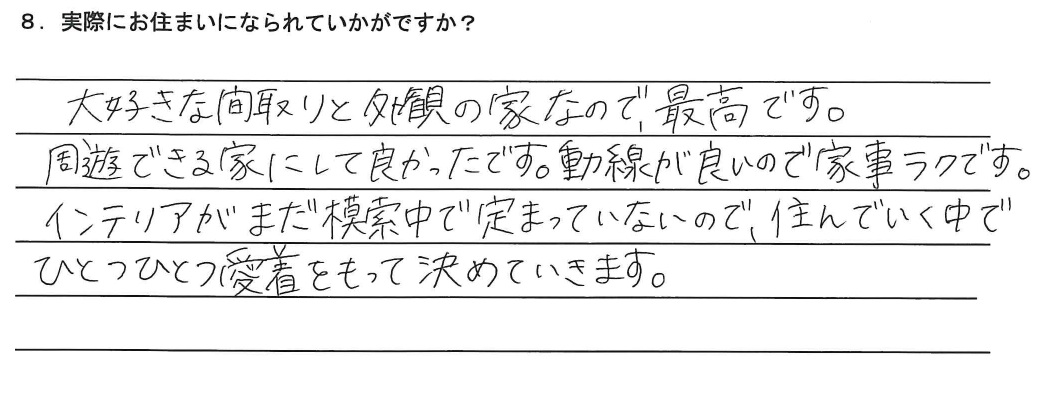 8. 実際にお住まいになられていかがですか？
大好きな間取りと外観の家なので、最高です。
周遊できる家にして良かったです。動線が良いので家事ラクです。
インテリアがまだ模索中で定まっていないので、住んでいく中で
ひとつひとつ愛着をもって決めていきます。